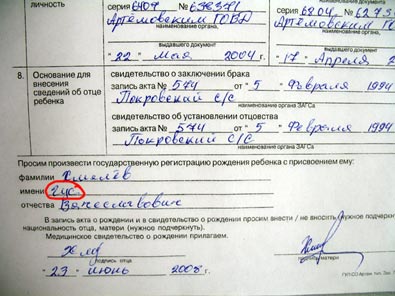 личность
серия 6404 №
Артёмовским ГОВД
наименование органа,
выдавшего документ
"22" Мая 2004 г.
серия 6804
Артёмовским ГО
наименование органа,
выдавшего документ
"17" Апреля 2
8. Основание для внесения сведений об отце ребенка
свидетельство о заключении брака
запись акта № 574 от "5" Февраля 1994
Покровский с/с
наименование органа ЗАГСа
свидетельство об установлении отцовства
запись акта № 574 от "5" Февраля 1994
Покровский с/с
наименование органа ЗАГСа
Просим произвести государственную регистрацию рождения ребенка с присвоением ему:
фамилии Хмелёв
имени Гус
отчества Вячеславович
В запись акта о рождении и в свидетельство о рождении просим внести / не вносить (нужное подчеркнуть)
национальность отца, матери (нужное подчеркнуть).
Медицинское свидетельство о рождении прилагаем.
подпись отца
"23" июнь 2008 г.